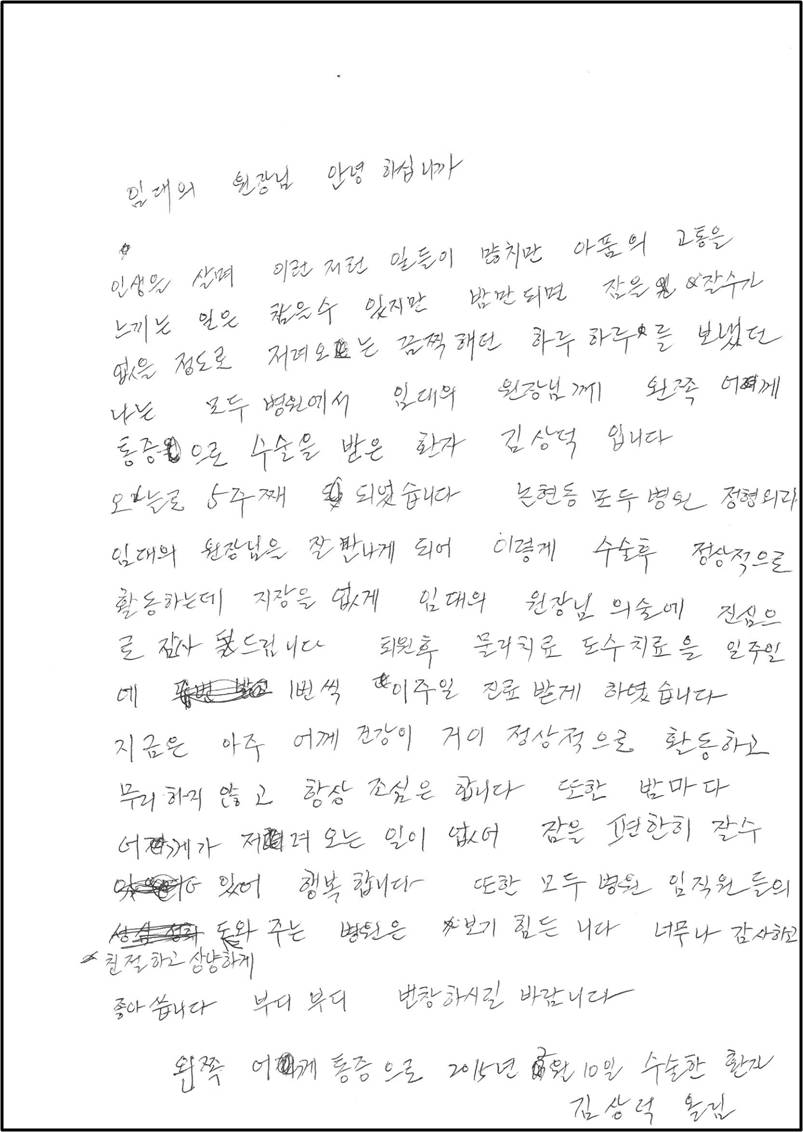 임대의 원장님 안녕 하십니까
인생을 살며 이런 저런 일들이 많치만 아품의 고통을
느끼는 일은 참을수 있지만 밤만되면 잠을 잘수가
없을 정도로 저려오는 끔찍해던 하루 하루를 보냈던
나는 모두병원에서 임대의 원장님께 왼쪽 어께
통증으로 수술을 받은 환자 김상덕 입니다
오늘로 5주째 되넜습니다 논현동 모두병원 정형외과
임대의 원장님을 잘 만나게 되어 이렇게 수술후 정상적으로
활동하는데 지장을 없게 임대의 원장님 의술에 진심으
로 감사 드립니다 퇴원후 물리치료 도수치료를 일주일
에 1번씩 이주일 진료 받게 하였습니다
지금은 아주 어께 건강이 거이 정상적으로 활동하고
무리하지 않고 항상 조심은 합니다 또한 밤마다
어께가 저려 오는 일이 없어 잠을 편한히 잘수
있어 행복합니다 또한 모두병원 임직원들의
친절하고 상냥하게
도와 주는 병원은 보기 힘든 니다 너무나 감사하고
좋아씁니다 부디부디 번창하시길 바랍니다
왼쪽 어께 통증으로 2015년 3월 10일 수술한 환자
김상덕 올림